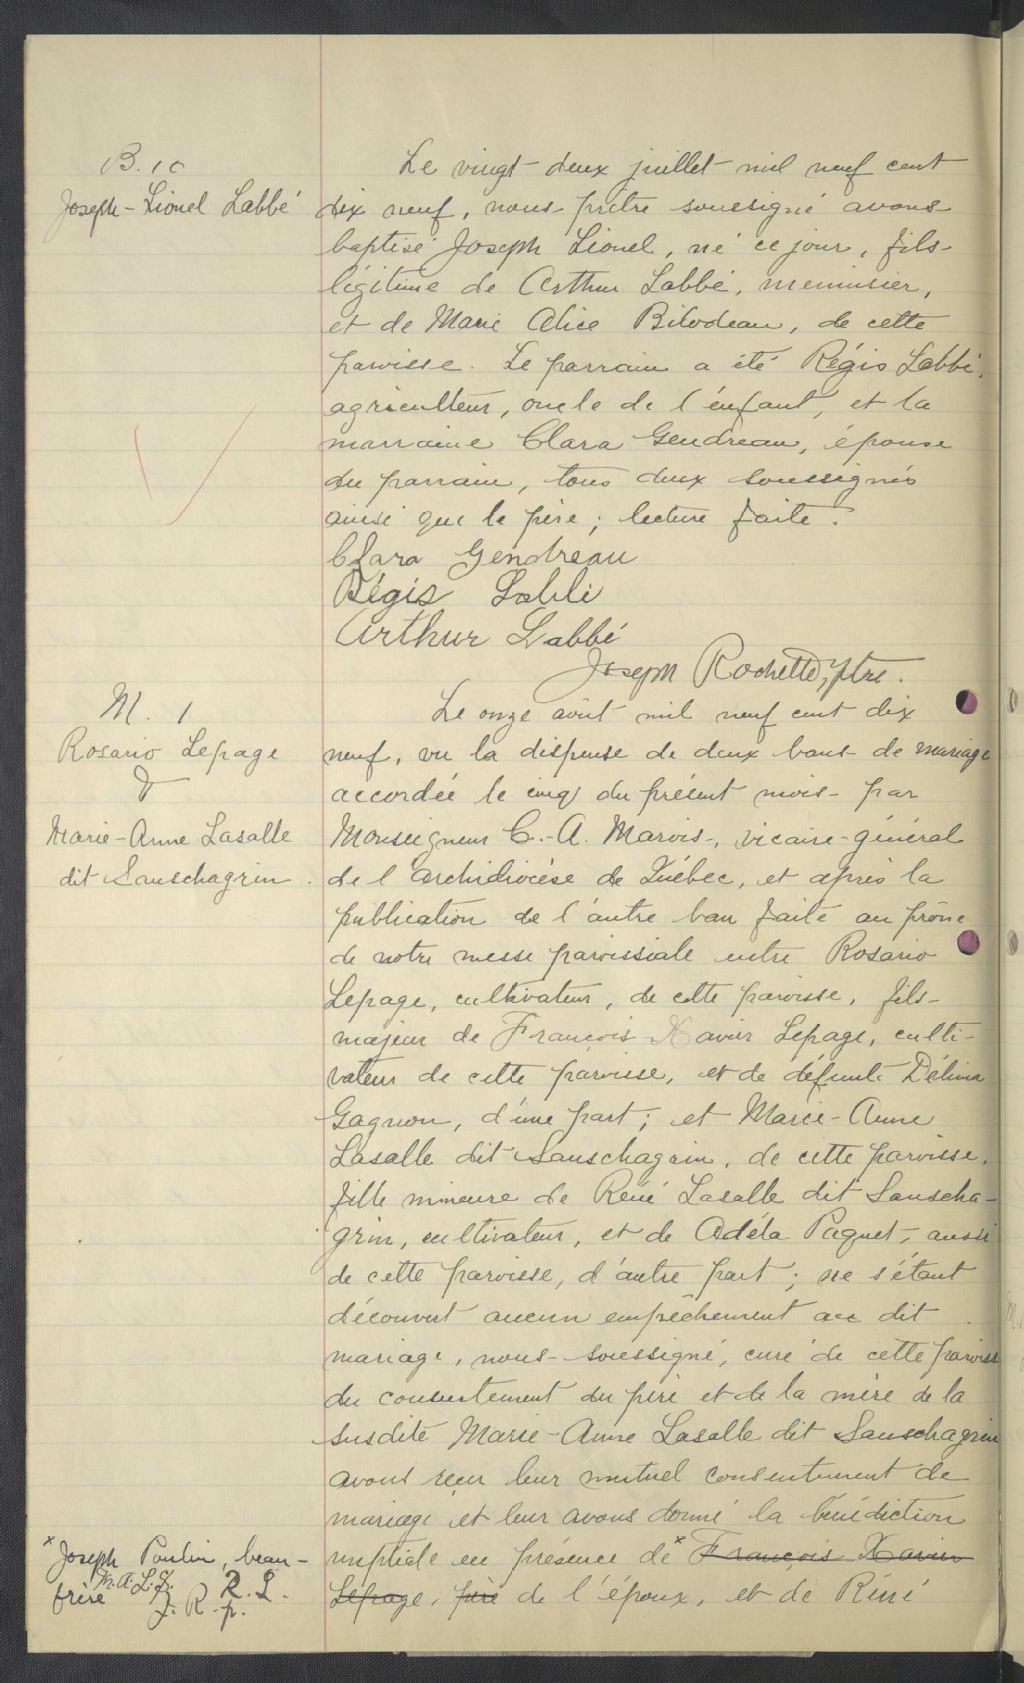 B. 10
Joseph-Lionel Labbé
Le vingt-deux juillet mil neuf cent
dix neuf, nous prêtre soussigné avons
baptisé Joseph Lionel, né ce jour, fils
légitime de Arthur Labbé, menuisier,
et de Marie Alice Bilodeau, de cette
paroisse. Le parrain a été Régis Labbé,
agriculteur, oncle de l'enfant, et la
marraine Clara Gendreau, épouse
du parrain, tous deux soussignés
ainsi que le père; lecture faite.
Clara Gendreau
Régis Labbé
Arthur Labbé
Joseph Rochette, ptre.
M. 1
Rosario Lepage
&
Marie-Anne Lasalle
dit Sanschagrin.
Le onze août mil neuf cent dix
neuf, vu la dispense de deux bans de mariage
accordée le cinq du présent mois par
Monseigneur C.-A. Marois, vicaire-général
de l'archidiocèse de Québec, et après la
publication de l'autre ban faite au prône
de notre messe paroissiale entre Rosario
Lepage, cultivateur, de cette paroisse, fils
majeur de François-Xavier Lepage, culti-
vateur de cette paroisse, et de défunte Délima
Gagnon, d'une part; et Marie-Anne
Lasalle dit Sanschagrin, de cette paroisse,
fille mineure de René Lasalle dit Sanscha-
grin, cultivateur, et de Adéla Paquet, aussi
de cette paroisse, d'autre part; ne s'étant
découvert aucun empêchement au dit
mariage, nous soussigné, curé de cette paroisse
du consentement du père et de la mère de la
susdite Marie-Anne Lasalle dit Sanschagrin
avons reçu leur mutuel consentement de
mariage et leur avons donné la bénédiction
nuptiale en présence de * François Xavier
Lepage, père de l'époux, et de Réné
* Joseph Poulin, beau-
frère M.A.L.S. R. L.
J. R. p.